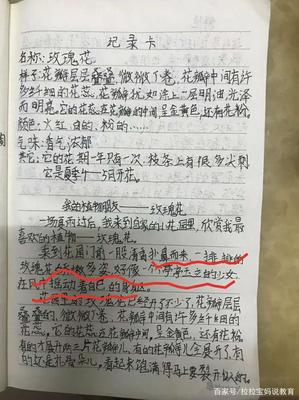 记录卡
名称:玫瑰花
样子:花瓣层层叠叠,微微下卷,花瓣中间有许
多纤细的花蕊。花瓣犹如涂上一层明油,光泽
而明亮,它的花蕊在花瓣的中间,呈金黄色,还有花粉
颜色:火红、白的、粉的……
气味:香气浓郁
其它:它的花期一年只有一次,枝条上有很多尖刺
它是每年4—5月开花。
我的植物朋友——玫瑰花
一场春雨过后,我来到自家的小花园,欣赏我最
喜欢的植物——玫瑰花。
来到花园门前一股清香扑鼻而来,一排排的
玫瑰花 多姿,好像一个亭亭玉立的少女,
在风中摇动着自己的身姿。
玫瑰花已经开了不少了,花瓣层层
叠叠的,微微下卷,花瓣中间有许多纤细的
花蕊,它的花蕊在花瓣中间,呈金黄色,还有花粉。
有的才展开两三片花瓣儿,有的花瓣儿全展开了,有
的还是花骨朵儿,看起来饱满得马上要裂开似的。
百家号/拉拉宝妈说教育